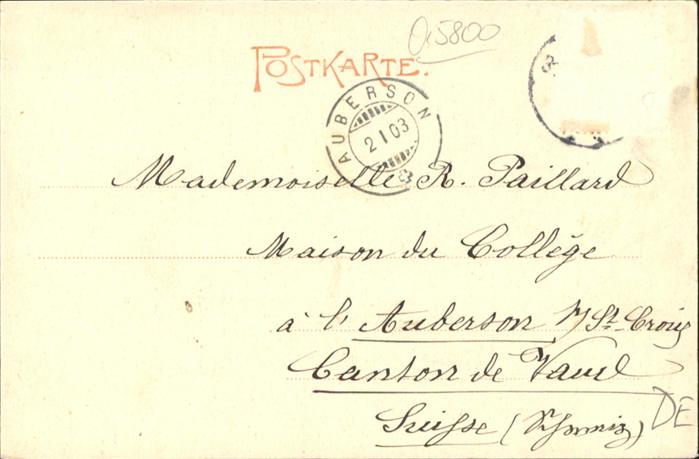 015800
POSTKARTE.
AUBERSON
2 I 03
Mademoiselle R. Paillard
Maison du Collège
à l'Auberson s/ Ste-Croix
Canton de Vaud
Suisse (Schweiz)
DE